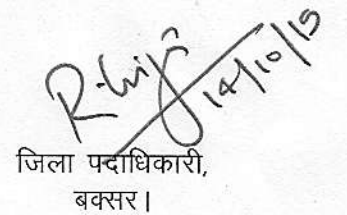 14/10/15
जिला पदाधिकारी,
बक्सर।